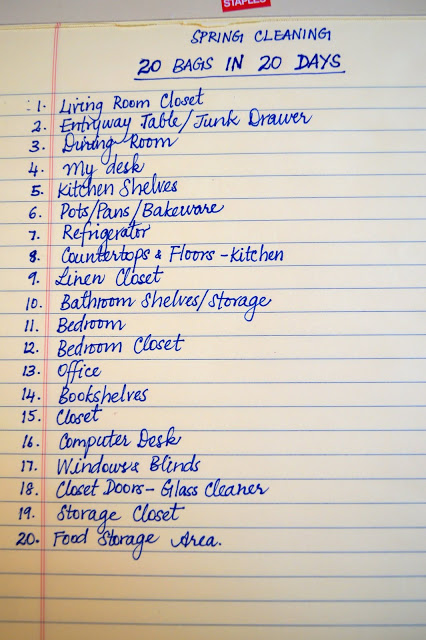 STAPLES
SPRING CLEANING
20 BAGS IN 20 DAYS
1. Living Room Closet
2. Entryway Table/Junk Drawer
3. Dining Room
4. My desk
5. Kitchen Shelves
6. Pots/Pans/Bakeware
7. Refrigerator
8. Countertops & Floors - Kitchen
9. Linen Closet
10. Bathroom Shelves/Storage
11. Bedroom
12. Bedroom Closet
13. Office
14. Bookshelves
15. Closet
16. Computer Desk
17. Windows & Blinds
18. Closet Doors - Glass Cleaner
19. Storage Closet
20. Food Storage Area.